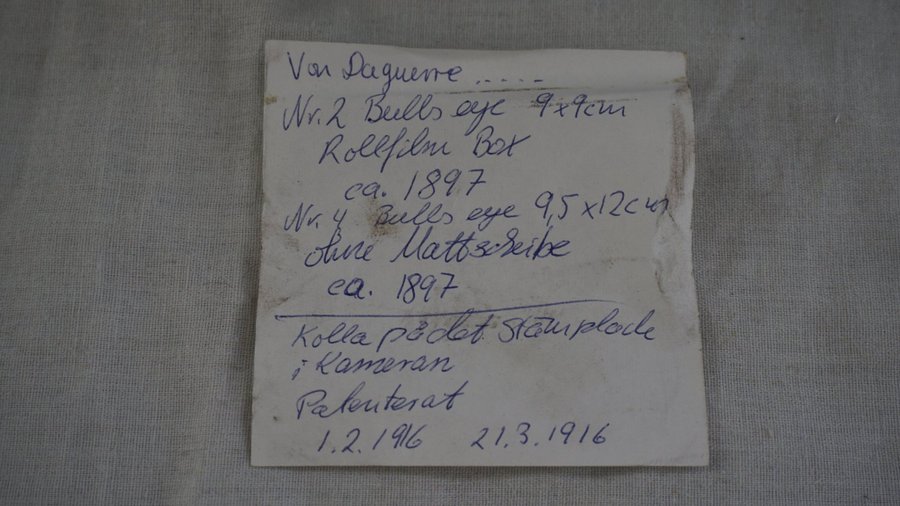 Von Daguerre .....
Nr. 2 Bulls eye 9x9cm
Rollfilm Box
ca. 1897
Nr. 4 Bulls eye 9,5x12cm
ohne Mattscheibe
ca. 1897
Kolla på det stämplade
i Kameran
Patenterat
1.2.1916 21.3.1916